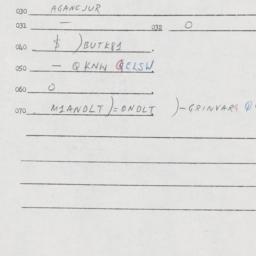 030 AGANCJUR
031 — 032 O
040 $ )BUTK81
050 — QKNW QCLSW
060 O
070 M1ANDLT)=DNDLT )-GRINVARS Q